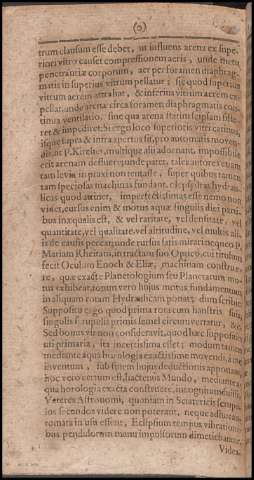 (o)
trum clausum esse debet, ut influens arena ex supe-
riori vitro causet compressionem aeris, unde metu
penetrantiæ corporum, aer per foramen diaphrag-
matis in superius vitrum pellatur; sicque quod superius
vitrum aerem attrahat, & inferius vitrum aerem ex-
pellat, unde arena circa foramen diaphragmatis con-
tinua ventilatio, sine qua arena statim
ret & impediret. Si ergo loco superioris vitri
& infra apertus sit, pro automatis moven-
dis, ut P. Kircher, multique alii adornant, impossibile
erit arenam defluere; unde patet, tales autores etiam
rem levem in praxi non tentasse, super quibus tamen
tam speciosas machinas fundant. clepsydras hydrau-
licas quod attinet, imperfectissimas esse nemo non
videt, cursus enim & motus aquæ singulis diei pro-
bus inæqualis est, & vel raritate, vel densitate, vel
quantitate, vel qualitate, vel altitudine, vel multis ali-
is de causis peccat; unde rursus satis mirari nequeo P.
Mariam Rheitam, in tractatu suo Optico, cui titulum
fecit Oculum Enoch & Eliæ, machinam construe-
re, quæ exacte Planetologium seu Planetarum mo-
tus exhibeat, totum vero hujus motus fundamentum
in aliquam rotam Hydraulicam ponat; dum scribit:
Supposito ergo quod prima rota cum hanstris suis,
singulis scrupulis primis semel circumvertatur, &c.
Sed bonus vir non consideravit, quod hæc suppositio,
uti primaria, ita incertissima est; modum tamen
mediante aqua horologia exactissime movendi, à me
inventum, sub finem hujus deductionis apponam;
hoc vero certum est, hactenus Mundo, mediante a-
qua horologia exacta construere, incognitum fuisse.
Veteres Astronomi, quoniam in Scatericis scrupu-
los secundos videre non poterant, neque adhuc
tomata in usu essent, Eclipsium tempus vibrationi-
bus pendulorum manu impulsorum dimetiebantur.
Videa-